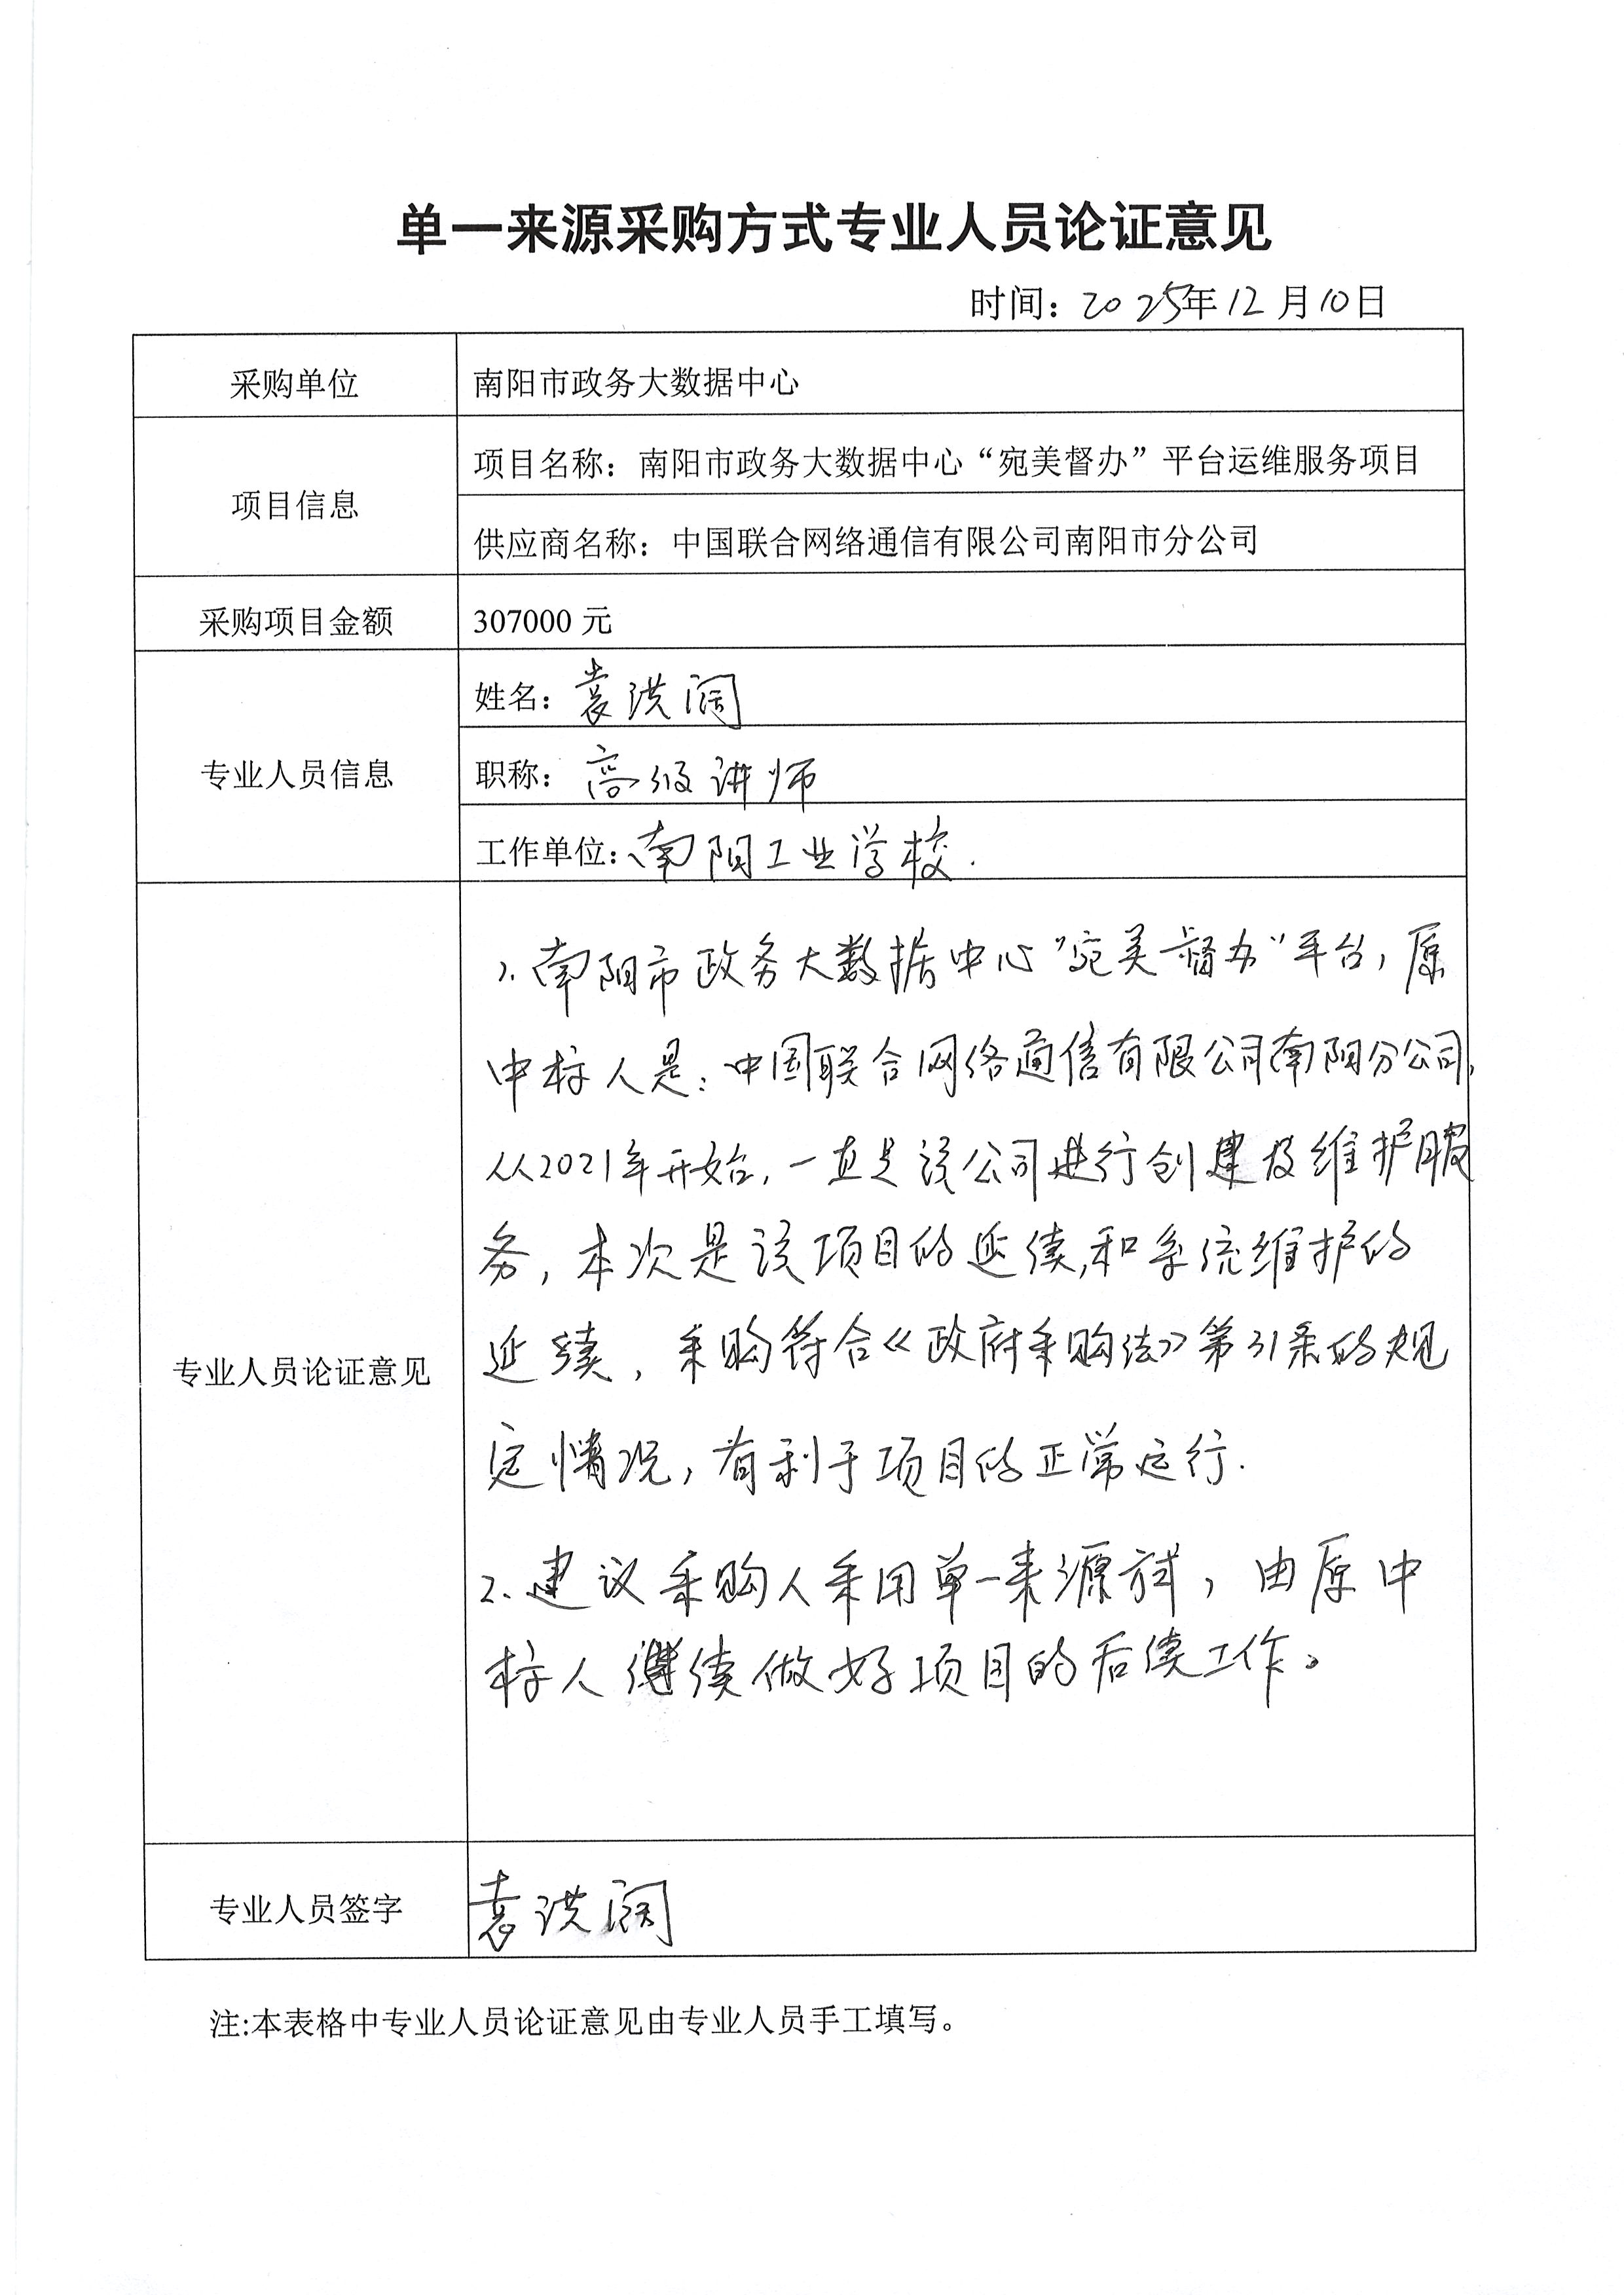 单一来源采购方式专业人员论证意见
时间：2025年12月10日
采购单位
南阳市政务大数据中心
项目信息
项目名称：南阳市政务大数据中心“宛美督办”平台运维服务项目
供应商名称：中国联合网络通信有限公司南阳市分公司
采购项目金额
307000 元
专业人员信息
姓名：袁洪阔
职称：高级讲师
工作单位：南阳工业学校.
专业人员论证意见
1. 南阳市政务大数据中心“宛美督办”平台，原
中标人是：中国联合网络通信有限公司南阳分公司，
从2021年开始，一直是该公司进行创建及维护服
务，本次是该项目的延续，和系统维护的
延续，采购符合《政府采购法》第31条的规
定情况，有利于项目的正常运行.
2. 建议采购人采用单一来源方式，由原中
标人继续做好项目的后续工作。
专业人员签字
袁洪阔
注:本表格中专业人员论证意见由专业人员手工填写。